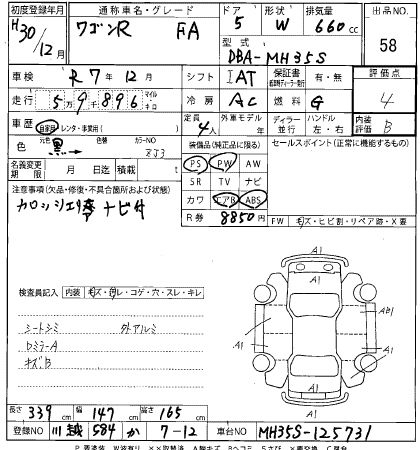 初度登録年月 通称車名・グレード ドア 形状 排気量 出品NO.
H30/12月 ワゴンR FA 5 W 660cc 58
型式 DBA-MH35S
車検 R7年12月 シフト IAT 保証書 有・無 評価点
走行 5万9千896 マイル キロ 冷房 AC 燃料 G 4
車歴 自家用 レンタ・事務用( ) 定員 4人 外車モデル 年 ディーラー 並行 ハンドル 左・右 内装評価 B
元色 色 黒 色替 カラーNO ZJ3 装備品(純正品に限る) セールスポイント(正常に機能するもの)
名義変更期限 月 日迄 積載 t PS PW AW
SR TV ナビ
注意事項(欠品・修復・不具合箇所および状態) カワ エアB ABS
カロッシェリア ナビ付 R券 8850円
FW キズ・ヒビ割・リペア跡・X要
A1
A1
検査員記入 内装 キズ・汚レ・コゲ・穴・スレ・キレ
A1 AB1
シートシミ 外アルミ
DミラーA
キズB
A1 A1
A1
長さ 339cm 幅 147cm 高さ 165cm
登録NO 川越 584 か 7-12 車台NO MH35S-125731